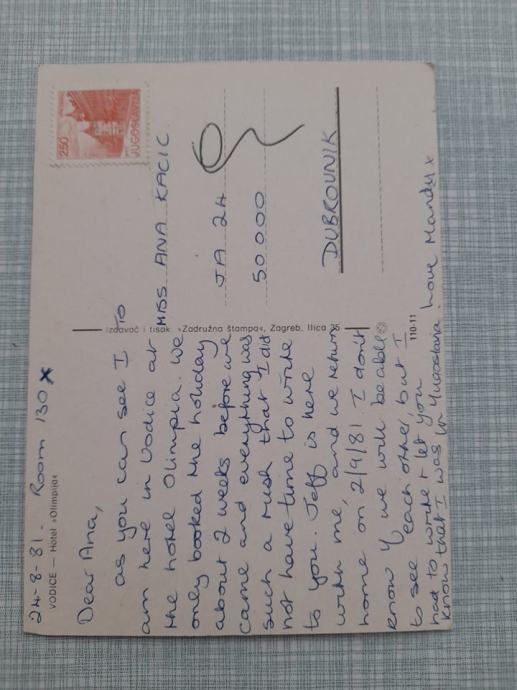 24-8-81. Room 130 X
VODICE — Hotel »Olimpija«
Dear Ana,
as you can see I
am here in Vodice at
the hotel Olimpia. We
only booked the holiday
about 2 weeks before we
came and everything was
such a rush that I did
not have time to write
to you. Jeff is here
with me, and we return
home on 2/9/81 I don't
know if we will be able
to see each other, but I
had to write & let you
know that I was in Yugoslavia. love Mandy x
Izdavač i tisak »Zadružna štampa«, Zagreb, Ilica 35
110-11
2.50
JUGOSLAVIJA
TO
MISS ANA KACIC
JA 24
50000
DUBROVNIK